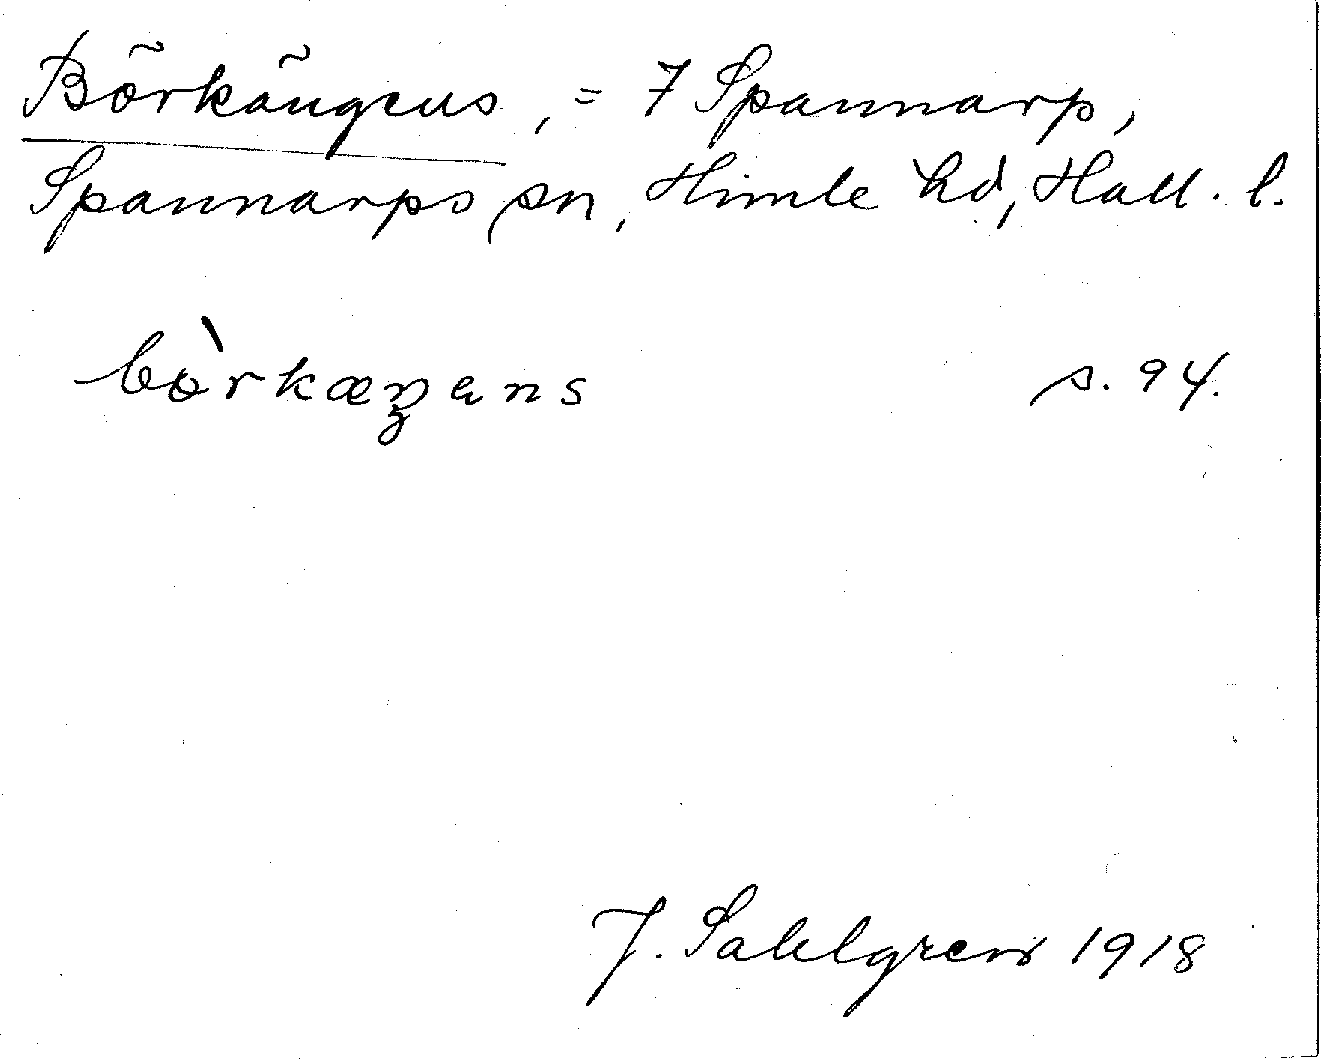 Börkängens, = 7 Spannarp,
Spannarps sn, Himle hd, Hall. l.
bòrkæŋens s. 94.
J. Sahlgren 1918